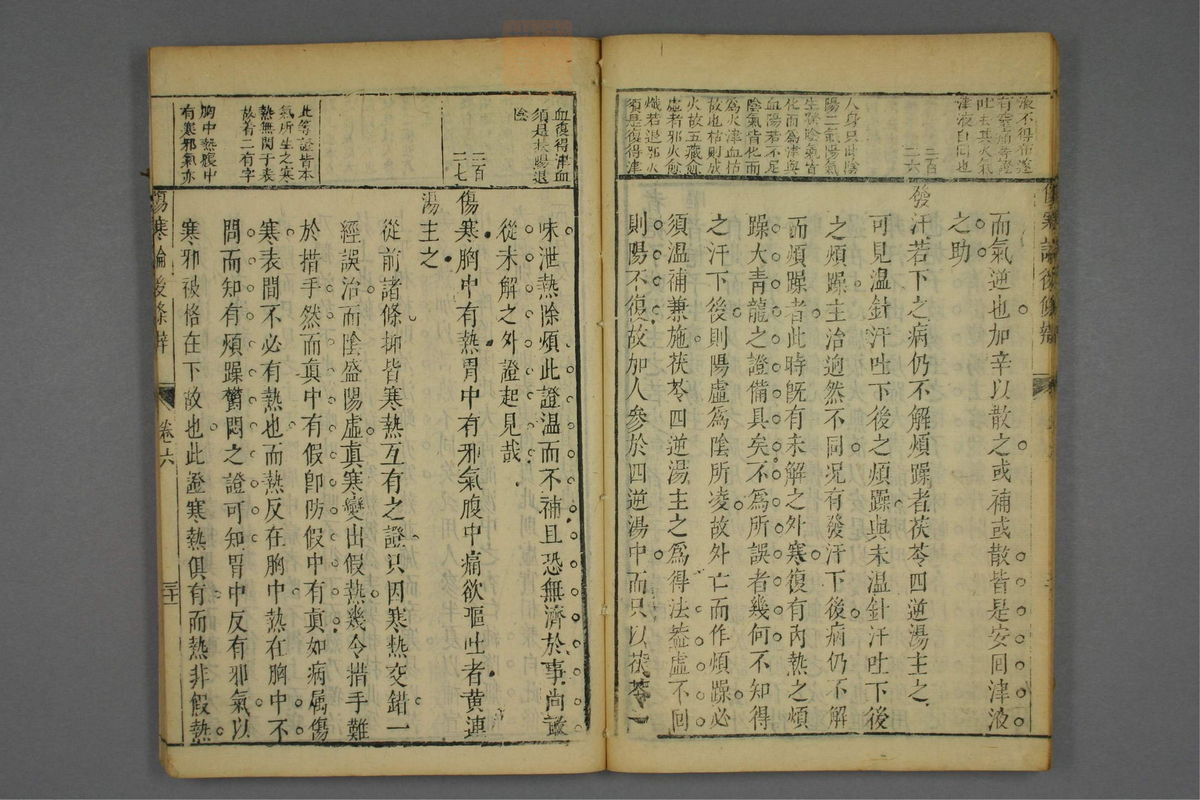 液不得布遂
有發痛等證
吐去其火氣
津液自回也
二百
二六
人身只此陰
陽二氣陽氣
生發陰氣皆
化而為津與
血陽若不足
陰氣皆化而
為火津血枯
故也枯則成
火故五藏愈
虛者邪火愈
熾若退邪火
須是復得津
傷寒論後條辨
而氣逆也加辛以散之或補或散皆是安回津液
之助
發汗若下之病仍不解煩躁者茯苓四逆湯主之
可見溫針汗吐下後之煩躁與未溫針汗吐下後
之煩躁主治逈然不同况有發汗下後病仍不解
而煩躁者此時旣有未解之外寒復有內熱之煩
躁大青龍之證備具矣不爲所誤者幾何不知得
之汗下後則陽虛爲陰所凌故外亡而作煩躁必
須溫補兼施茯苓四逆湯主之爲得法葢虛不回
則陽不復故加人參於四逆湯中而只以茯苓一
血復得津血
須是扶陽退
陰
二百
二七
此等證皆本
氣所生之寒
熱無関于表
故着二有字
胸中熱腹中
有寒邪氣亦
味泄熱除煩此證溫而不補且恐無濟於事尚敢
從未解之外證起見哉
傷寒胸中有熱胃中有邪氣腹中痛欲嘔吐者黄連
湯主之
從前諸條抑皆寒熱互有之證只因寒热交錯一
經誤治而陰盛陽虛眞寒變出假熱幾令措手難
於措手然而眞中有假卽防假中有眞如病属傷
寒表間不必有熱也而熱反在胸中熱在胸中不
問而知有煩躁欝悶之證可知胃中反有邪氣以
寒邪被格在下故也此證寒熱俱有而熱非假熱
傷寒論後條辨
卷六
二十